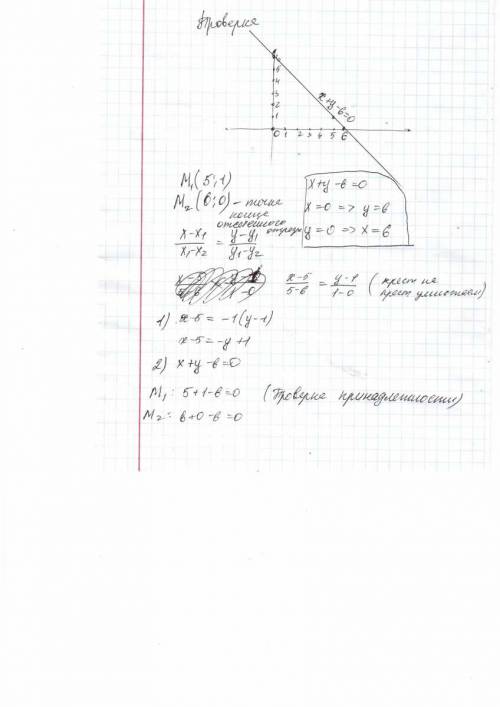 Проверка
x+y-6=0
0 1 2 3 4 5 6
1
2
3
4
5
M₁(5;1)
M₂(6;0) - точка
конце
отсечённого
отрезка
(x-x₁)/(x₁-x₂) = (y-y₁)/(y₁-y₂)
x+y-6=0
x=0 => y=6
y=0 => x=6
(x-5)/(5-6) = (y-1)/(1-0) (крест на
крест умножаем)
1) x-5 = -1(y-1)
x-5 = -y+1
2) x+y-6=0
M₁: 5+1-6=0 (Проверка принадлежности)
M₂: 6+0-6=0